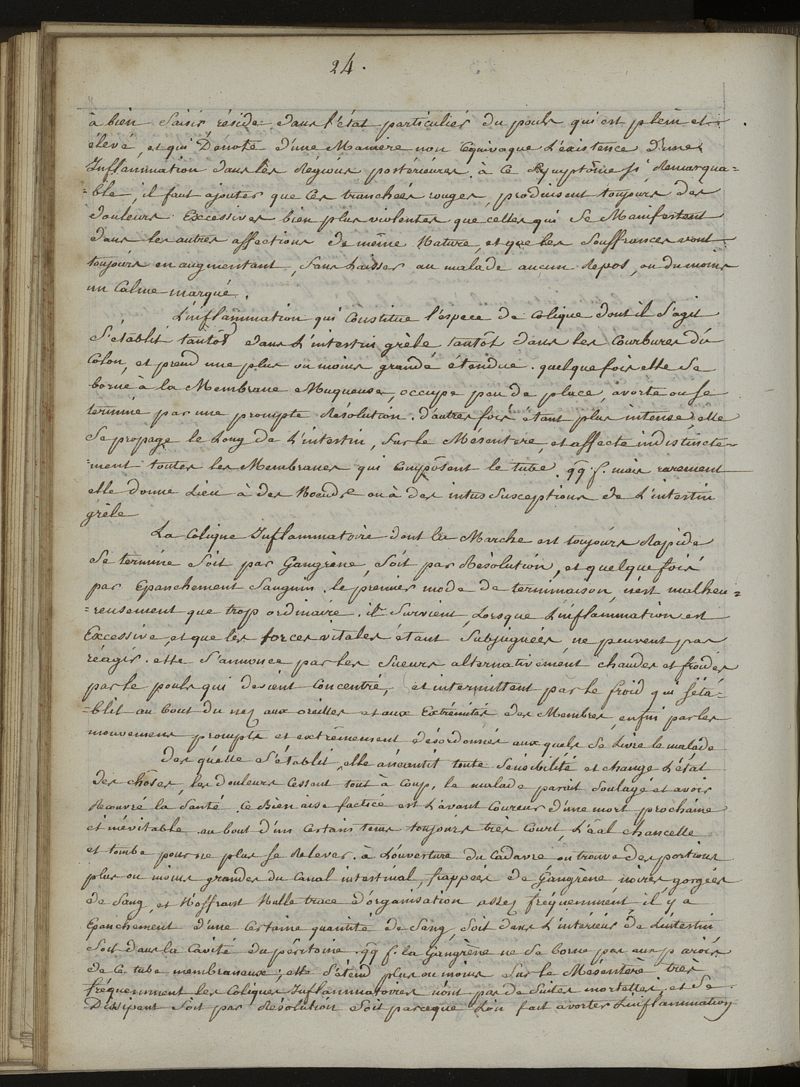 24.
à bien saisir réside dans l'état particulier du pouls qui est plein et
élevé, et qui Dénote d'une Maniere non Equivoque L'éxistence d'une
Inflammation dans les Régions postérieures. à ce Symptôme si Remarqua=
=ble, il faut ajouter que Ces tranchées rouges, produisent toujours des
douleurs Excessives bien plus violentes que celles qui se Manifestent
dans les autres affections de même Nature, et que les Souffrances vont
toujours en augmentant, sans laisser au malade aucun Repos, ou du moins
un Calme marqué.
L'inflammation qui Constitue l'espece de Colique dont il s'agit
S'établit tantôt dans L'intestin grèle tantôt dans les Courbures du
Colon, et prend une plus ou moins grande étendue. quelque fois elle se
borne à la Membrane Muqueuse, occupe peu de place, avorte ou se
termine par une prompte Résolution. d'autres fois étant plus intense, elle
Se propage le Long de L'intestin, sur le Mésentere, et affecte indistincte=
=ment toutes les Membranes qui Composent le tube. qq. f. mais rarement
elle donne Lieu à des Noeuds ou à des intus Susceptions de L'intestin
grèle
La Colique Inflammatoire dont la Marche est toujours Rapide
Se termine Soit par Gangrène, Soit par Résolution, et quelque fois
par Epanchement Sanguin. le premier mode de terminaison, n'est malheu=
=reusement que trop ordinaire. il Survient, Lorsque L'inflammation est
Excessive, et que les forces vitales étant Subjuguées, ne peuvent pas
réagir. elle s'annonce par les Sueurs alternativement chaudes et froides
par le pouls qui devient Concentré, et intermittent par le froid qui s'éta=
=blit au bout du nez aux oreilles et aux Extrémités des Membres, enfin par les
mouvemens prompts et extrêmement désordonnés aux quels se livre le malade
Dès qu'elle s'établit, elle anéantit toute Sensibilité et change L'état
des choses, les douleurs Cessent tout à Coup, le malade parait Soulagé et avoir
Recouvré la Santé. Ce Bien aise factice est L'avant Coureur d'une mort prochaine
et inévitable. au bout d'un Certain tems toujours très Court, L'âal chancelle
et tombe pour ne plus se Relever. à L'ouverture du Cadavre on trouve des portions
plus ou moins grandes du Canal intestinal, frappées de Gangrène noires gorgées
de Sang, et N'offrant Nulle trace d'organisation, assez fréquemment il y a
Epanchement d'une Certaine quantité de Sang, Soit dans L'intérieur de L'intestin
Soit dans la Cavité du péritoine. qq. f. la Gangrène ne se borne pas aux parois
de Ce tube membraneux; elle S'étend plus ou moins sur le Mésentère très
fréquemment les Coliques Inflammatoires n'ont pas de Suites mortelles, et Se
Dissipent Soit par Résolution Soit parceque L'on fait avorter L'inflammation